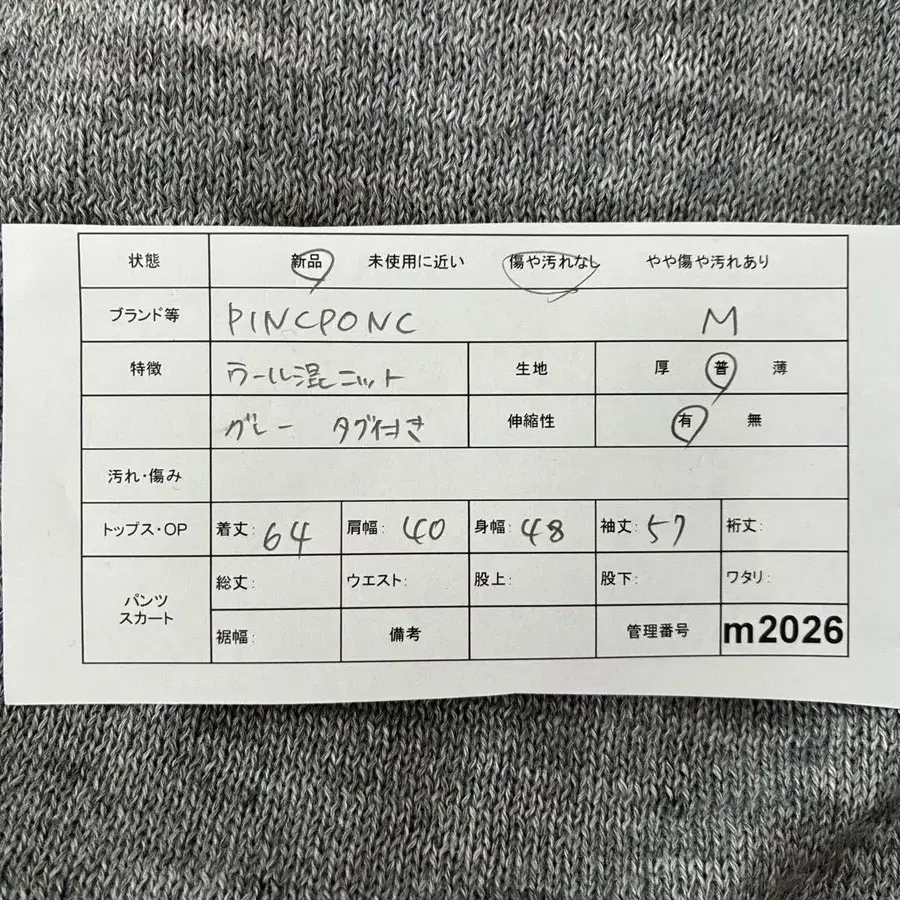 状態 新品 未使用に近い 傷や汚れなし やや傷や汚れあり
ブランド等 PINCPONC M
特徴 ウール混ニット 生地 厚 普 薄
グレー タグ付き 伸縮性 有 無
汚れ・傷み
トップス・OP 着丈: 64 肩幅: 40 身幅: 48 袖丈: 57 裄丈:
パンツ スカート 総丈: ウエスト: 股上: 股下: ワタリ:
裾幅: 備考 管理番号 m2026